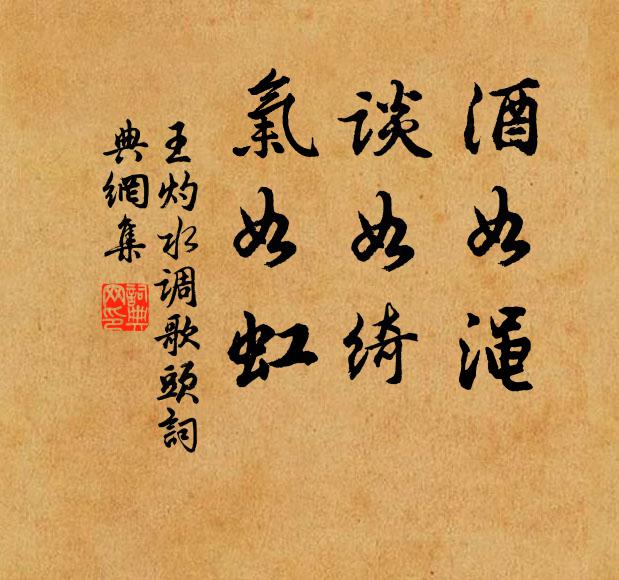 酒如渑
谈如绮
氣如虹
王灼水调歌頭詞
典網集
詞典
网印